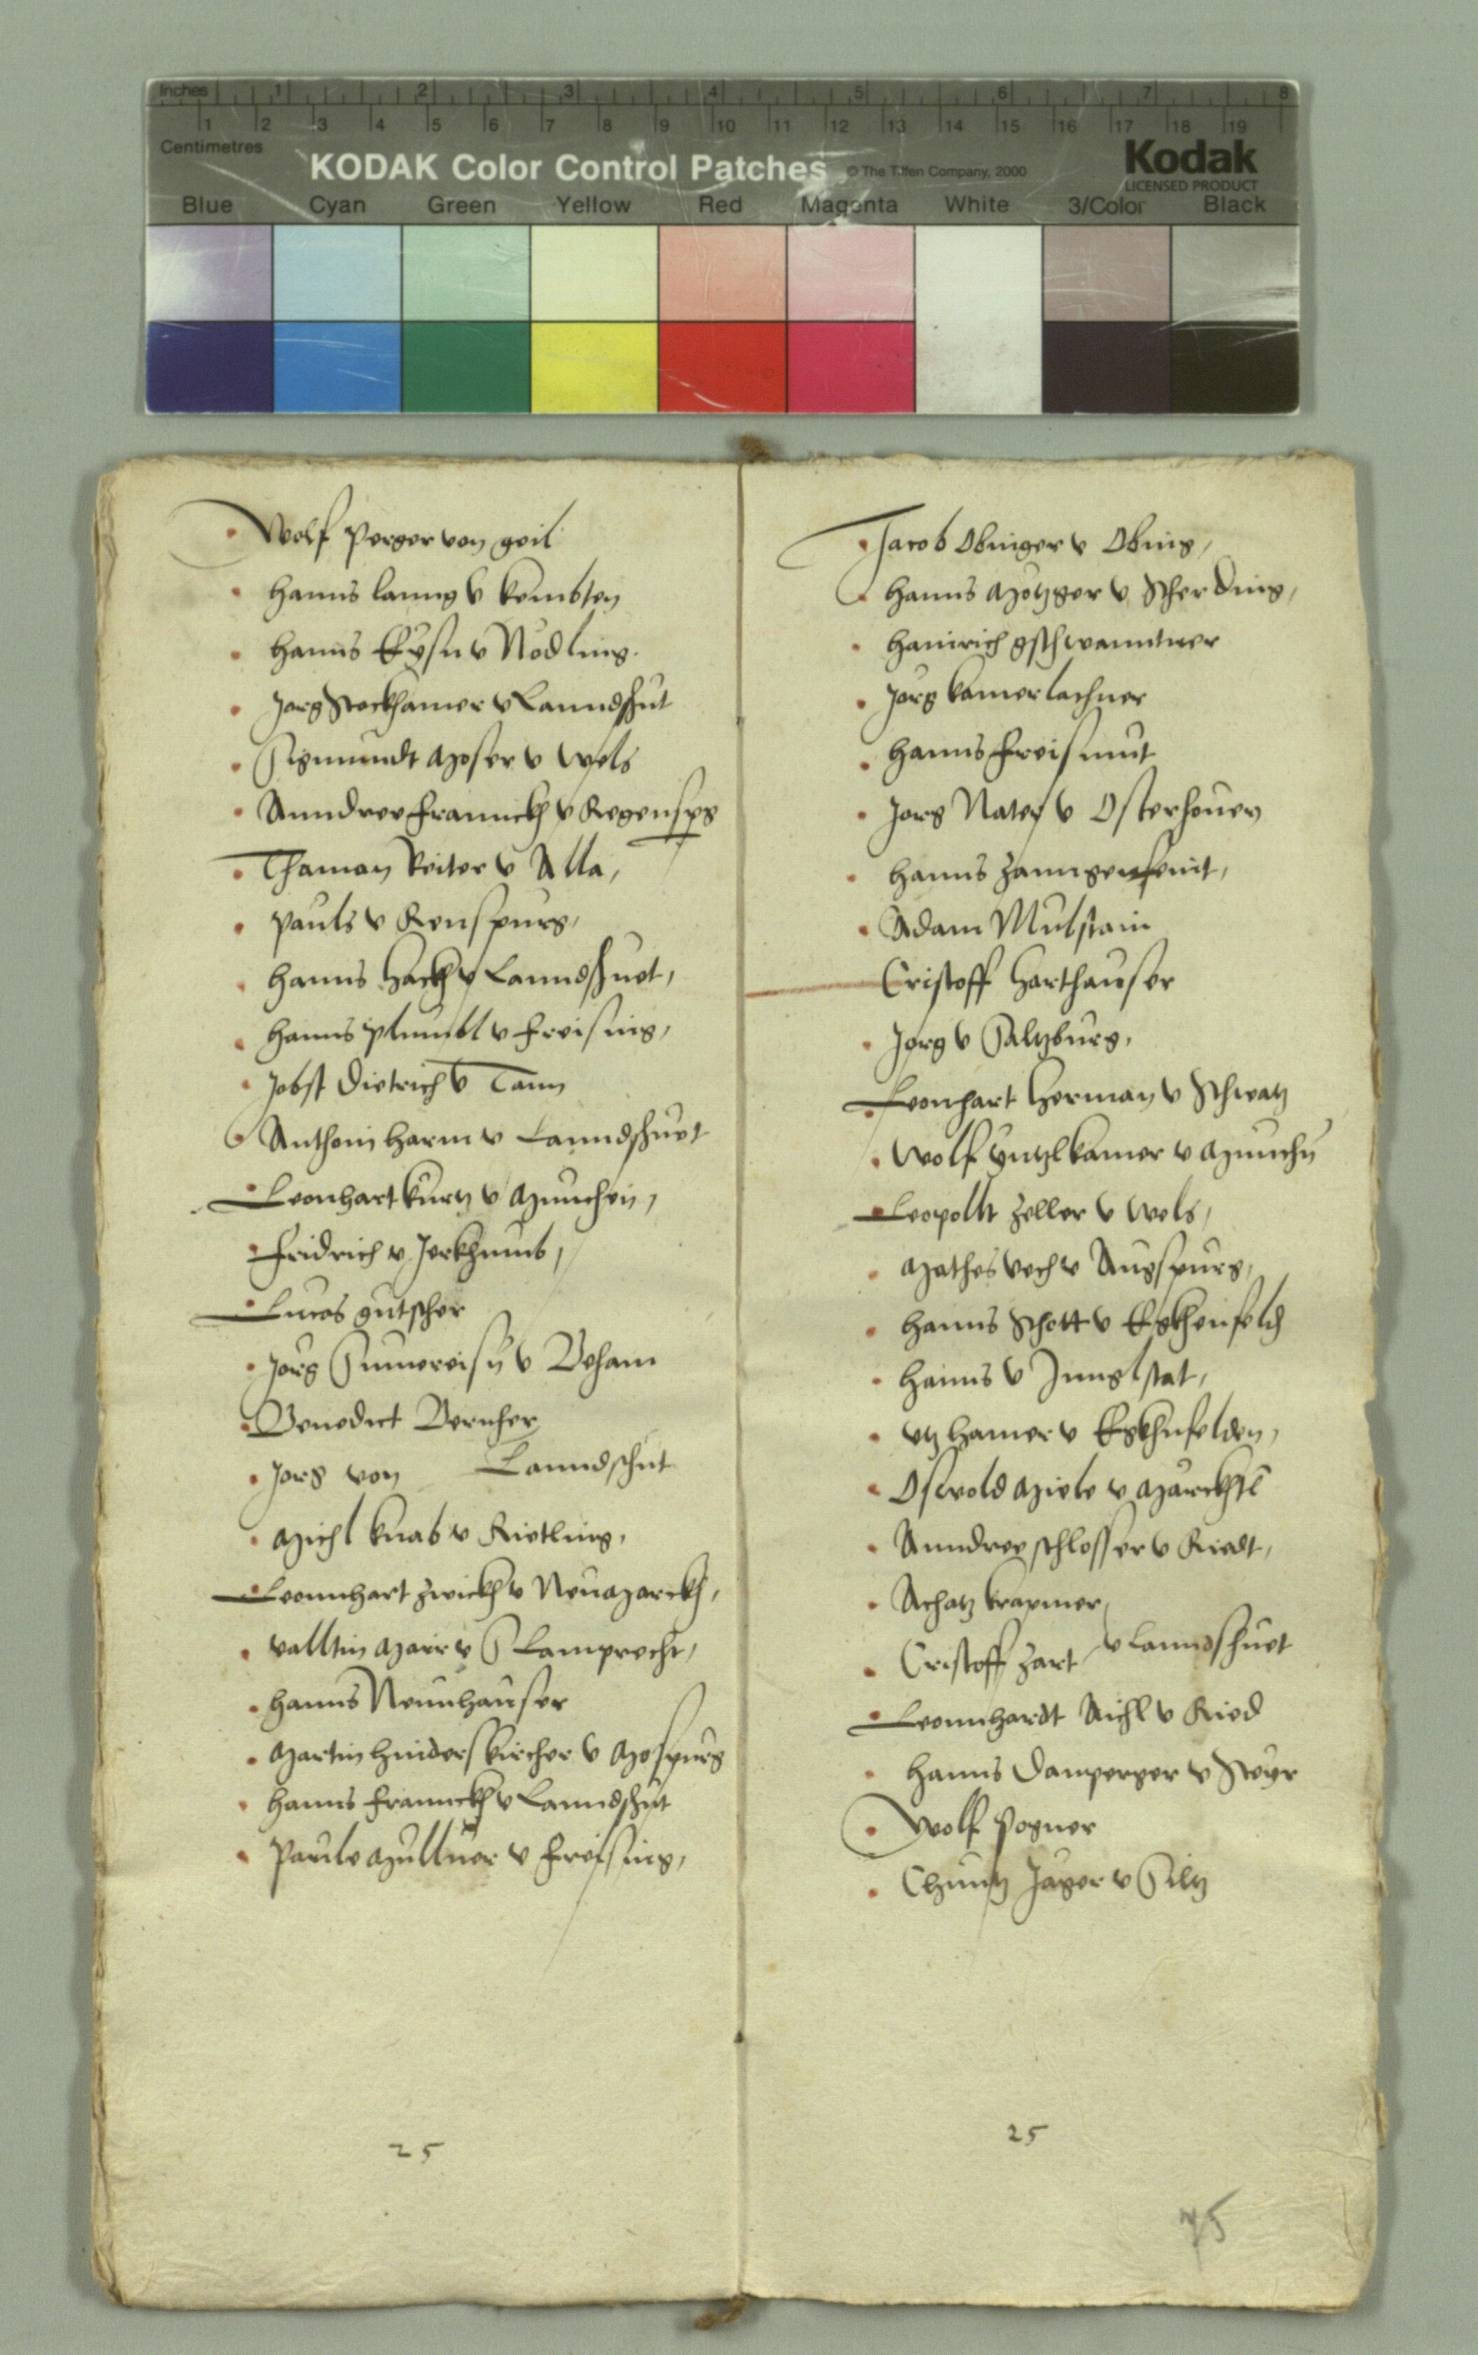 Inches 1 2 3 4 5 6 7 8
1 2 3 4 5 6 7 8 9 10 11 12 13 14 15 16 17 18 19
Centimetres
KODAK Color Control Patches © The Tiffen Company, 2000 Kodak
LICENSED PRODUCT
Blue Cyan Green Yellow Red Magenta White 3/Color Black
Wolf Perger von geil
Hanns lanng v kembten
Hanns Eysn v Nödling
Jorg Stockhamer v Lanndshut
Sigmundt Moser v Wels
Anndree Frannckh v Regenspg
Thaman Reiter v Alla,
Pauls v Renspurg,
Hanns Hackh v Lanndshuet,
Hanns Plumbl v Freising,
Jobst Dietrich v Tann
Anthoni Harm v Lanndshuet
Leonhart kurtz v Munchen,
Fridrich v
Lucas gutscher
Jorg v Beham
Benedict
Jorg von Lanndschut
Michl knab v Rietling,
Leonnhart Zwickh v Neumarckh,
Valltin Mair v S Lamprecht,
Hanns Neunhauser
Martin Hinderskircher v Mospurg
Hanns Franckh v Lanndshut
Paule Mullner v Freising,
25
Jacob Obinger v Obing,
Hanns Metzger v Scherding,
Hainrich gschwanntner
Jorg kamerlachner
Hanns Freismut
Jorg Nater v Osterhouen
Hanns
Adam Mulstain
Cristoff Harthauser
Jorg v Saltzburg,
Leonhart Herman v Schwatz
Wolf v Munchn
Leopollt Zeller v Wels,
Mathes Vech v Augspurg,
Hanns Schott v Egkhenfeld
Hanns v Innglstat,
Utz Hamer v Egkhnfelden,
Oswold Miele v Marckhtl
Anndree Schlosser v Riedt,
Achatz kramer
v Lanndshuet
Cristoff Zart
Leonnhardt Aichl v Ried
Hanns Damperger v Steyr
Wolf Pogner
Chuntz Jager v Siltz
25
75